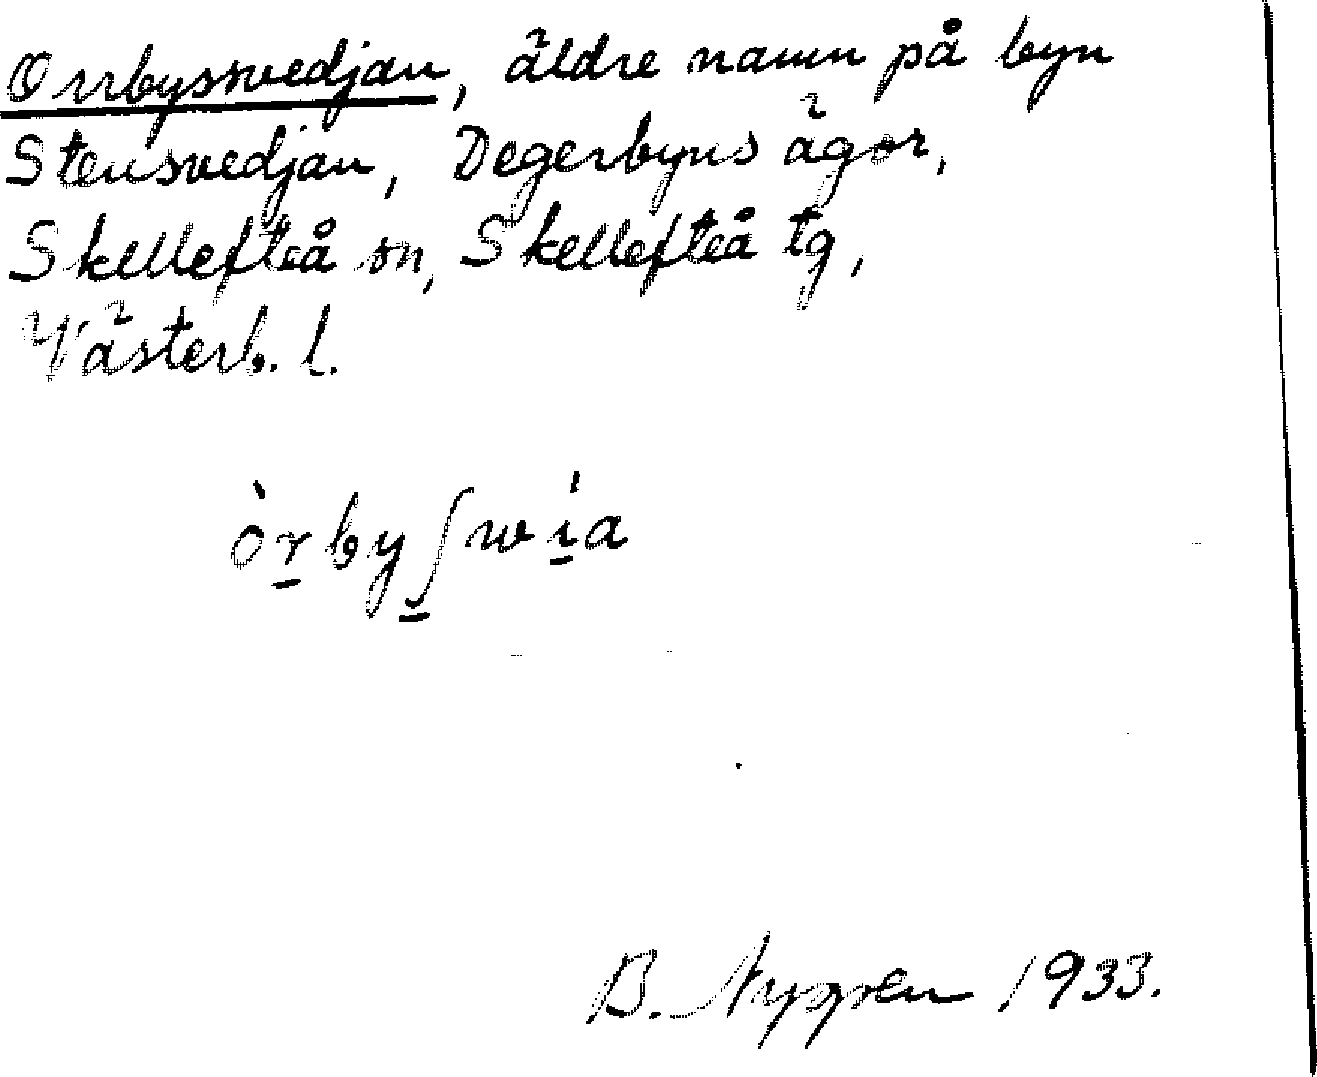 Orrbyssvedjan, äldre namn på byn
Stensvedjan, Degerbyns ägor,
Skellefteå sn, Skellefteå tg,
Västerb. l.
òrbyʃwia
B. Nygren 1933.